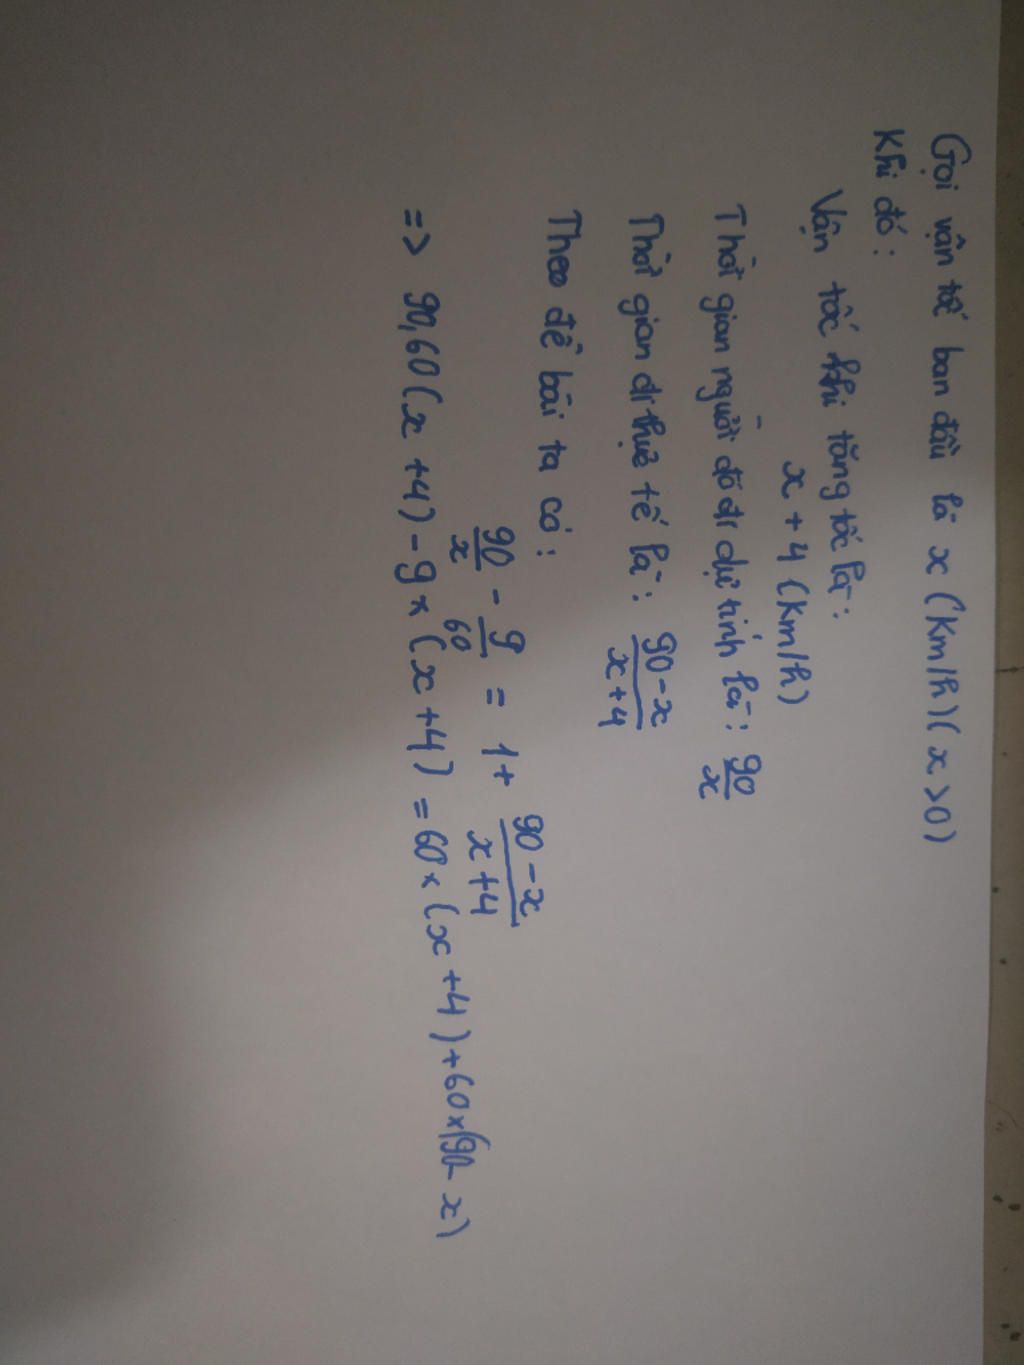 Gọi vận tốc ban đầu là x (km/h) (x >0)
Khi đó:
Vận tốc khi tăng tốc là:
x + 4 (km/h)
Thời gian người đó đi dự tính là: 90/x
Thời gian đi thực tế là: 90-x/x+4
Theo đề bài ta có:
90/x - 9/60 = 1 + 90-x/x+4
=> 90,60 (x +4) - 9x (x +4) = 60x (x +4) + 60x (90- x)